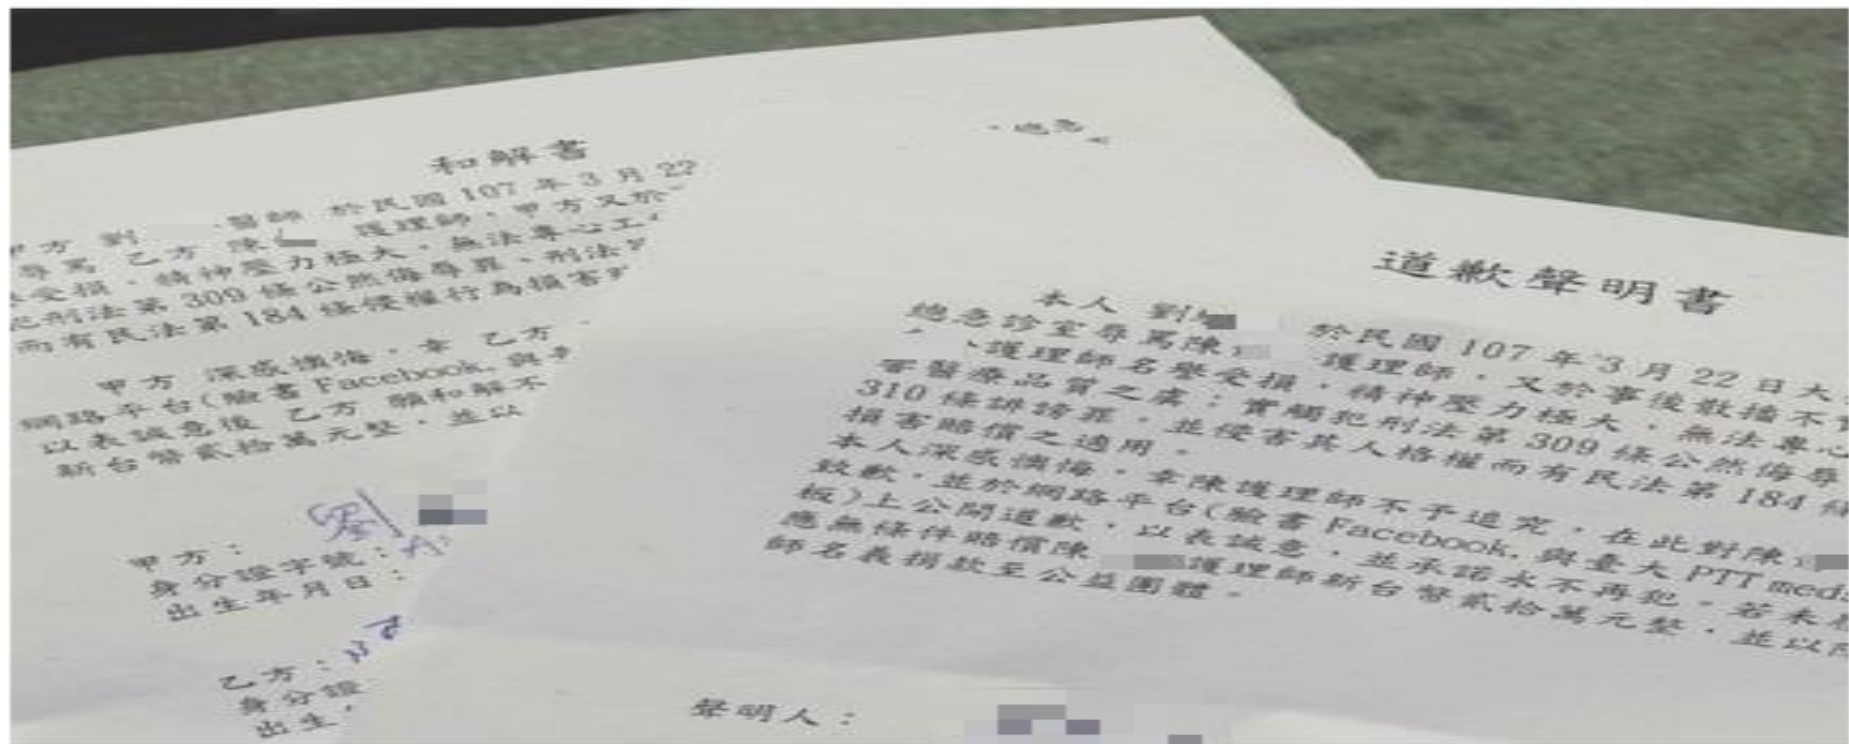 和解書
甲方 劉 醫師 於民國 107 年 3 月 22
辱罵 乙方 陳 護理師,甲方又於
受損,精神壓力極大,無法專心工
犯刑法第 309 條公然侮辱罪、刑法
而有民法第 184 條侵權行為損害
甲方 深感懊悔,幸 乙方
網路平台(臉書 Facebook, 與
以表誠意後 乙方 願和解不
新台幣貳拾萬元整,並以
甲方:劉
身分證字號:
出生年月日:
乙方:
身分證
出生
總急
道歉聲明書
本人 劉 於民國 107 年 3 月 22 日大
總急診室辱罵陳 護理師,又於事後散播不
護理師名譽受損,精神壓力極大,無法專心
害醫療品質之虞;實觸犯刑法第 309 條公然侮辱
310 條誹謗罪,並侵害其人格權而有民法第 184 條
損害賠償之適用。
本人深感懊悔,幸陳護理師不予追究,在此對陳
致歉,並於網路平台(臉書 Facebook, 與臺大 PTT med
板)上公開道歉,以表誠意,並承諾永不再犯。若未
應無條件賠償陳 護理師新台幣貳拾萬元整,並以
師名義捐款至公益團體。
聲明人: